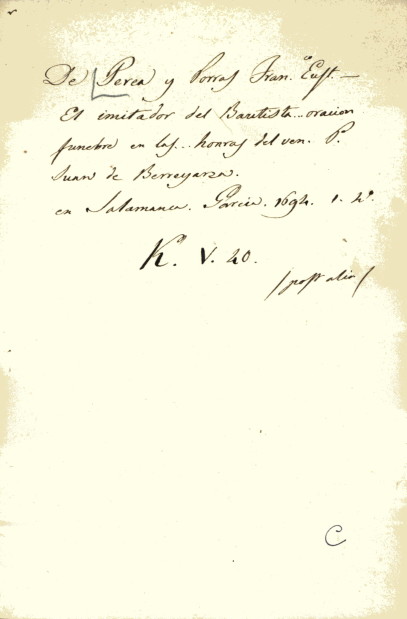 De Perea y Porras Fran.º Eust. —
El imitador del Bautista... oracion
funebre en las... honras del ven. P.
Juan de Berreyarza.
en Salamanca. Garcia. 1694. 1. 4º.
K. V. 20.
/ post alia /
C